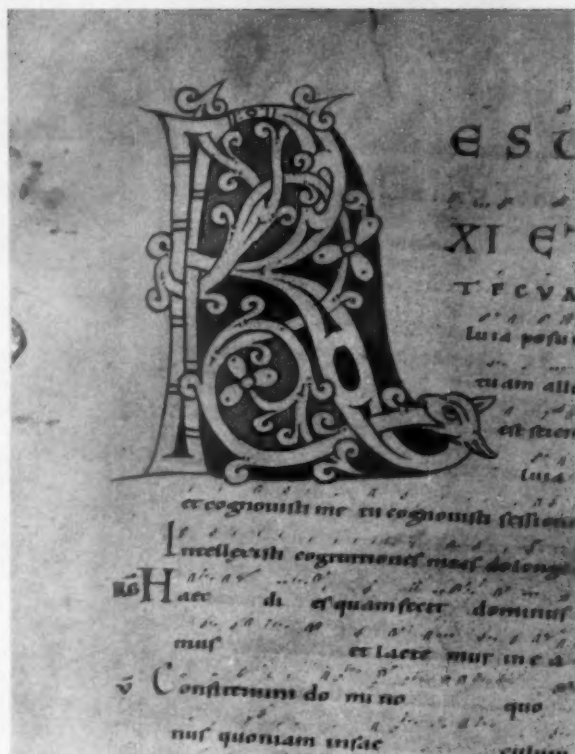 R ESU
XI ET
TECVM
luia posui
tuam alle
est scien
luia
et cognouisti me tu cognouisti sessione
Intellexisti cogitationes meas de longe
Haec di es quam fecit dominus
mus et laete mur in e a
v̄ Confitemini do mi no quo
nus quoniam insae culum